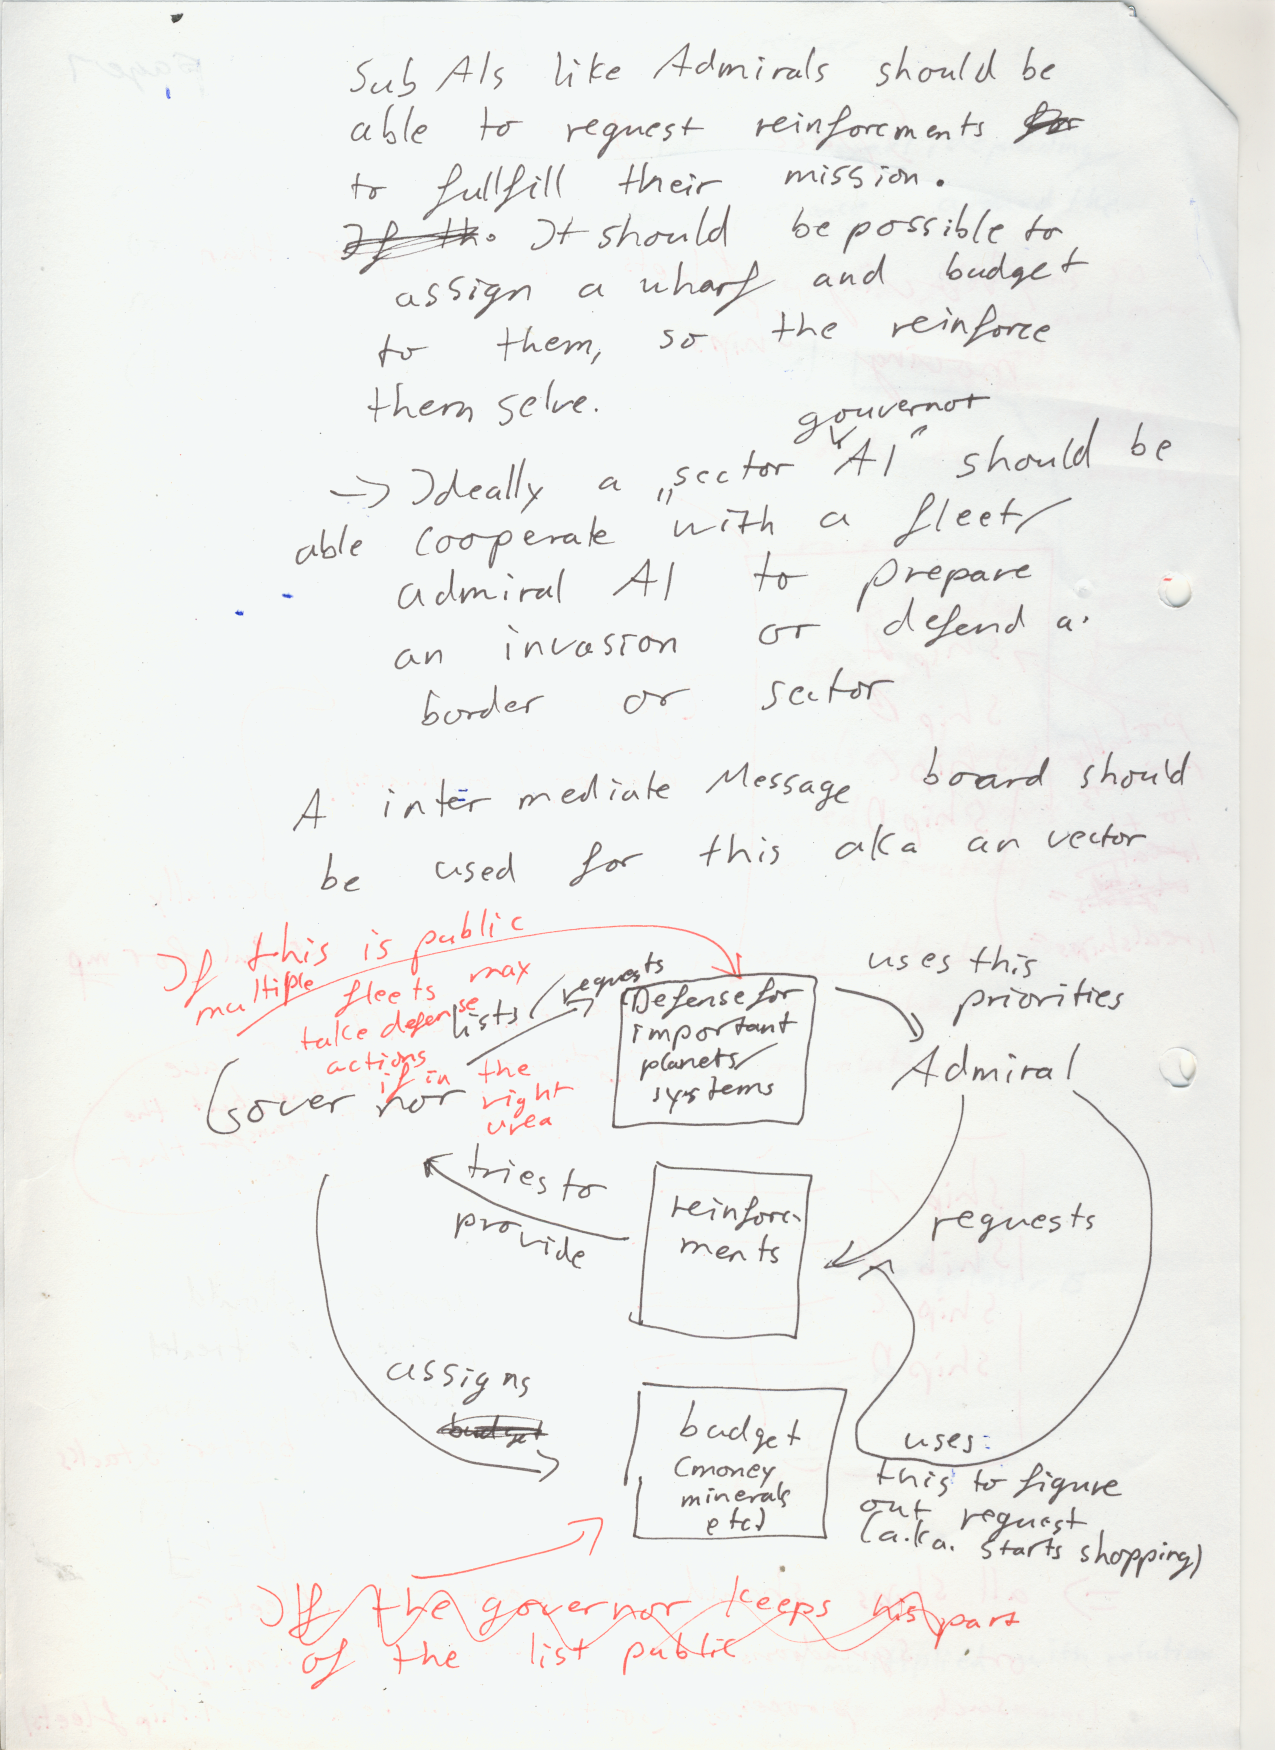 Sub AIs like Admirals should be
able to request reinforcments for
to fullfill their mission.
If th. It should be possible to
assign a wharf and budget
to them, so the reinforce
them selve.
gouvernor
-> Ideally a „sector AI" should be
able cooperate with a fleet/
admiral AI to prepare
an invasion or defend a
border or sector
A inter mediate Message board should
be used for this aka an vector
If this is public
multiple fleets max
take defense
actions
if in the
right
area
lists/requests
Defense for
important
planets/
systems
uses this
priorities
Governor
Admiral
tries to
provide
reinforc-
ments
requests
assigns
budget
budget
(money
minerals
etc)
uses
this to figure
out request
(a.k.a. starts shopping)
If the governor keeps his part
of the list public